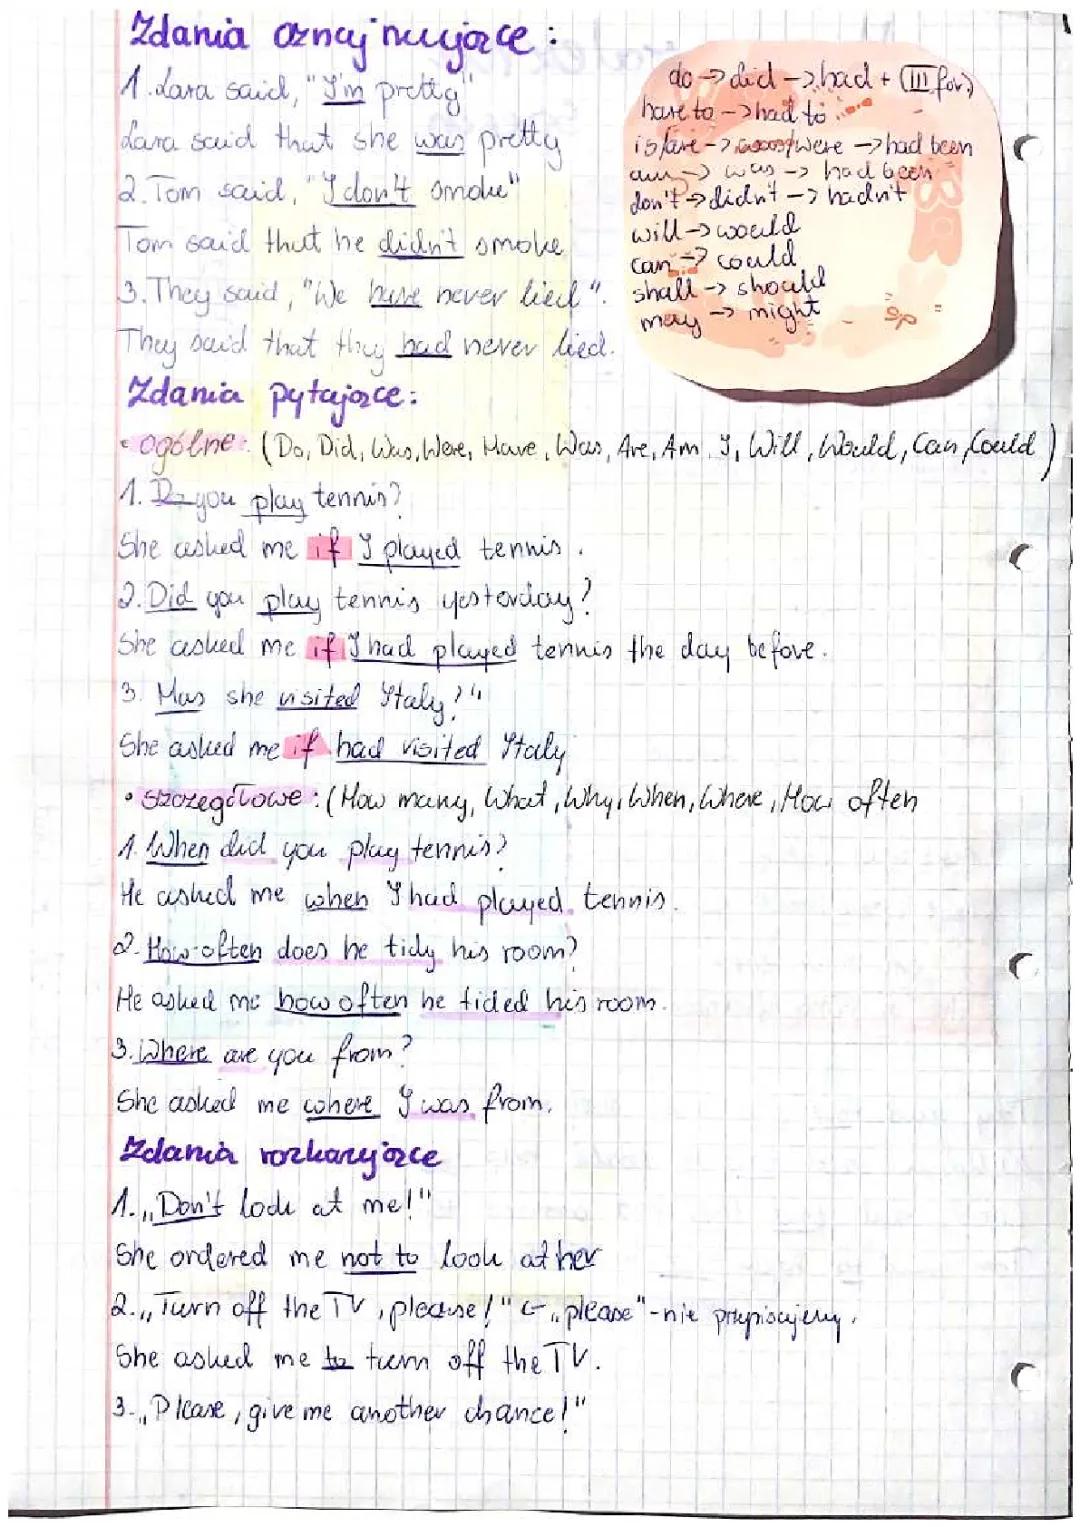 Zdania oznajmujące:
1. Lara said, "I'm pretty"
Lara said that she was pretty
2. Tom said, "I don't smoke"
Tom said that he didn't smoke
3. They said, "We have never lied".
They said that they had never lied.
do -> did -> had + (III for)
have to -> had to
is/are -> was/were -> had been
am -> was -> had been
don't -> didn't -> hadn't
will -> would
can -> could
shall -> should
may -> might
Zdania pytające:
• ogólne: (Do, Did, Was, Were, Have, Was, Are, Am I, Will, Would, Can, Could)
1. Do you play tennis?
She asked me if I played tennis.
2. Did you play tennis yesterday?
She asked me if I had played tennis the day before.
3. Has she visited Italy?"
She asked me if had visited Italy
• szczegółowe: (How many, What, Why, When, Where, How often
1. When did you play tennis?
He asked me when I had played tennis.
2. How often does he tidy his room?
He asked me how often he tided his room.
3. Where are you from?
She asked me where I was from.
Zdania rozkazujące
1. „Don't look at me!"
She ordered me not to look at her
2. „Turn off the TV, please!" <- „please" - nie przepisujemy.
She asked me to turn off the TV.
3. „Please, give me another chance!"